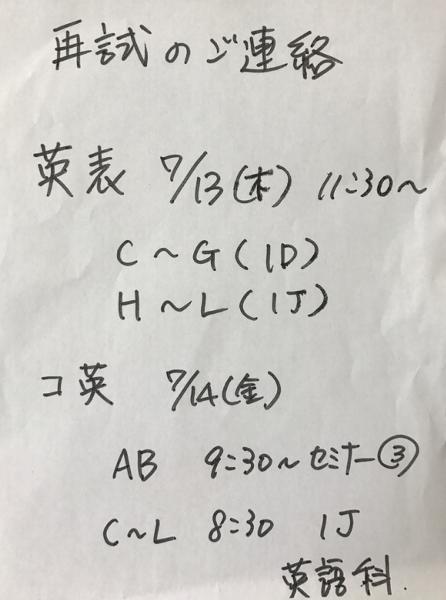 再試のご連絡
英表 7/13(木) 11:30～
C～G(1D)
H～L(1J)
コ英 7/14(金)
AB 9:30～セミナー③
C～L 8:30 1J
英語科.